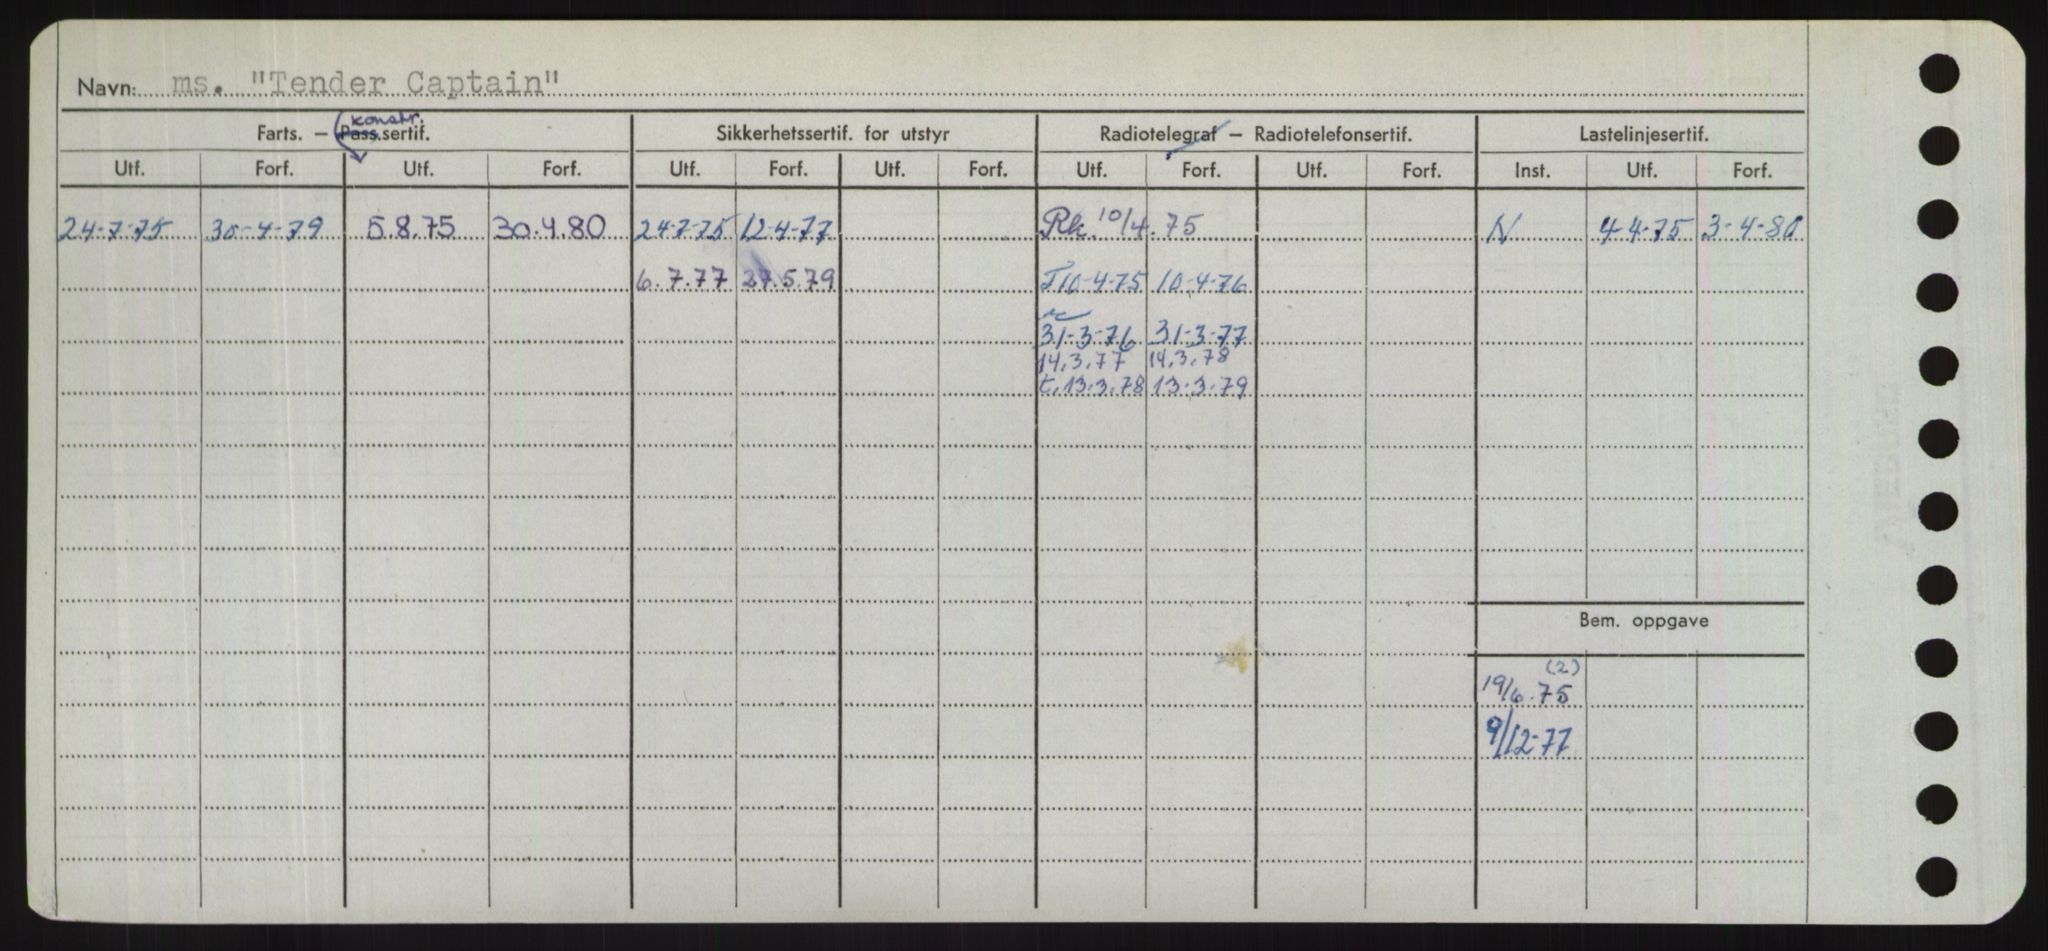 Navn: ms. "Tender Captain"
konstr.
Farts. – Pass.sertif. Sikkerhetssertif. for utstyr Radiotelegraf – Radiotelefonsertif. Lastelinjesertif.
Utf. Forf. Utf. Forf. Utf. Forf. Utf. Forf. Utf. Forf. Utf. Forf. Inst. Utf. Forf.
24-7-75 30-4-79 5.8.75 30.4.80 24-7-75 12-4-77 Rk. 10/4.75 N 4-4-75 3-4-80
6.7.77 27.5.79 T10-4-75 10-4-76
31-3-76 31-3-77
14.3.77 14.3.78
t.13.3.78 13-3-79
Bem. oppgave
(2)
19/6.75
9/12-77